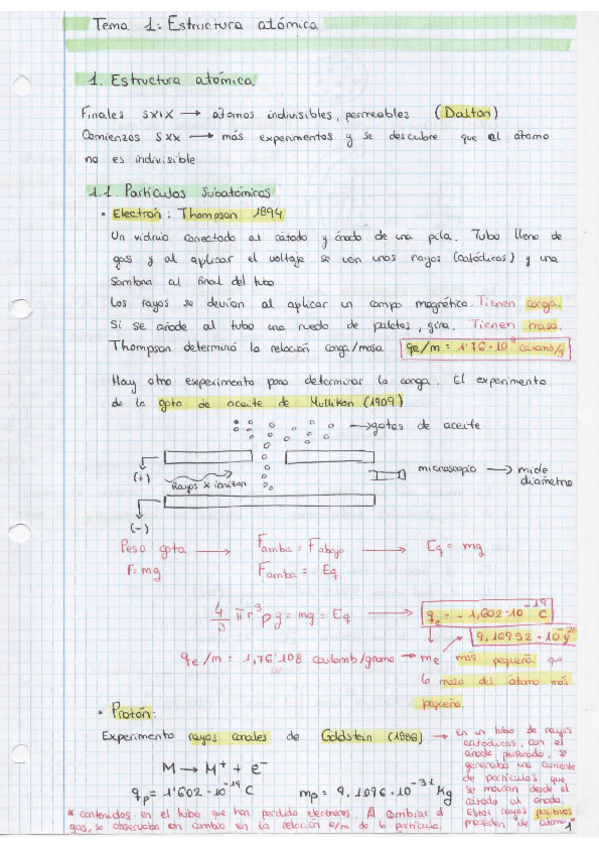 Tema 1: Estructura atómica
1. Estructura atómica.
Finales SXIX → átomos indivisibles, permeables (Dalton)
Comienzos SXX → más experimentos y se descubre que el átomo
no es indivisible
1.1. Partículas Subatómicas
• Electrón: Thompson 1894
Un vidrio conectado al cátodo y ánodo de una pila. Tubo lleno de
gas y al aplicar el voltaje se ven unos rayos (catódicos) y una
sombra al final del tubo
Los rayos se desvían al aplicar un campo magnético. Tienen carga.
Si se añade al tubo una rueda de paletas, gira. Tienen masa.
Thompson determinó la relación carga/masa qe/m = 1'76·10⁸ coulomb/g
Hay otro experimento para determinar la carga. El experimento
de la gota de aceite de Mullikan (1909)
→ gotas de aceite
(+)
Rayos x ionizan
microscopio → mide
diámetro
(-)
Peso gota → Farriba = Fabajo → Eq = mg
F=mg Farriba = Eq
4/3 πr³ρg = mg = Eq → qe = -1,602·10⁻¹⁹ C
qe/m = 1,76·108 coulomb/gramo → me más pequeña que
la masa del átomo más
pequeño.
• Protón:
Experimento rayos canales de Goldstein (1886) → En un tubo de rayos
catódicos, con el
ánodo perforado, se
generaba una corriente
de partículas que
se movían desde el
cátodo al ánodo.
Estos rayos positivos
proceden de átomos
M → M⁺ + e⁻
qp = 1'602·10⁻¹⁹ C mp = 9,1096·10⁻³¹ Kg
* contenidos en el tubo que han perdido electrones. Al cambiar el
gas, se observaba un cambio en la relación e/m de la partícula.
1